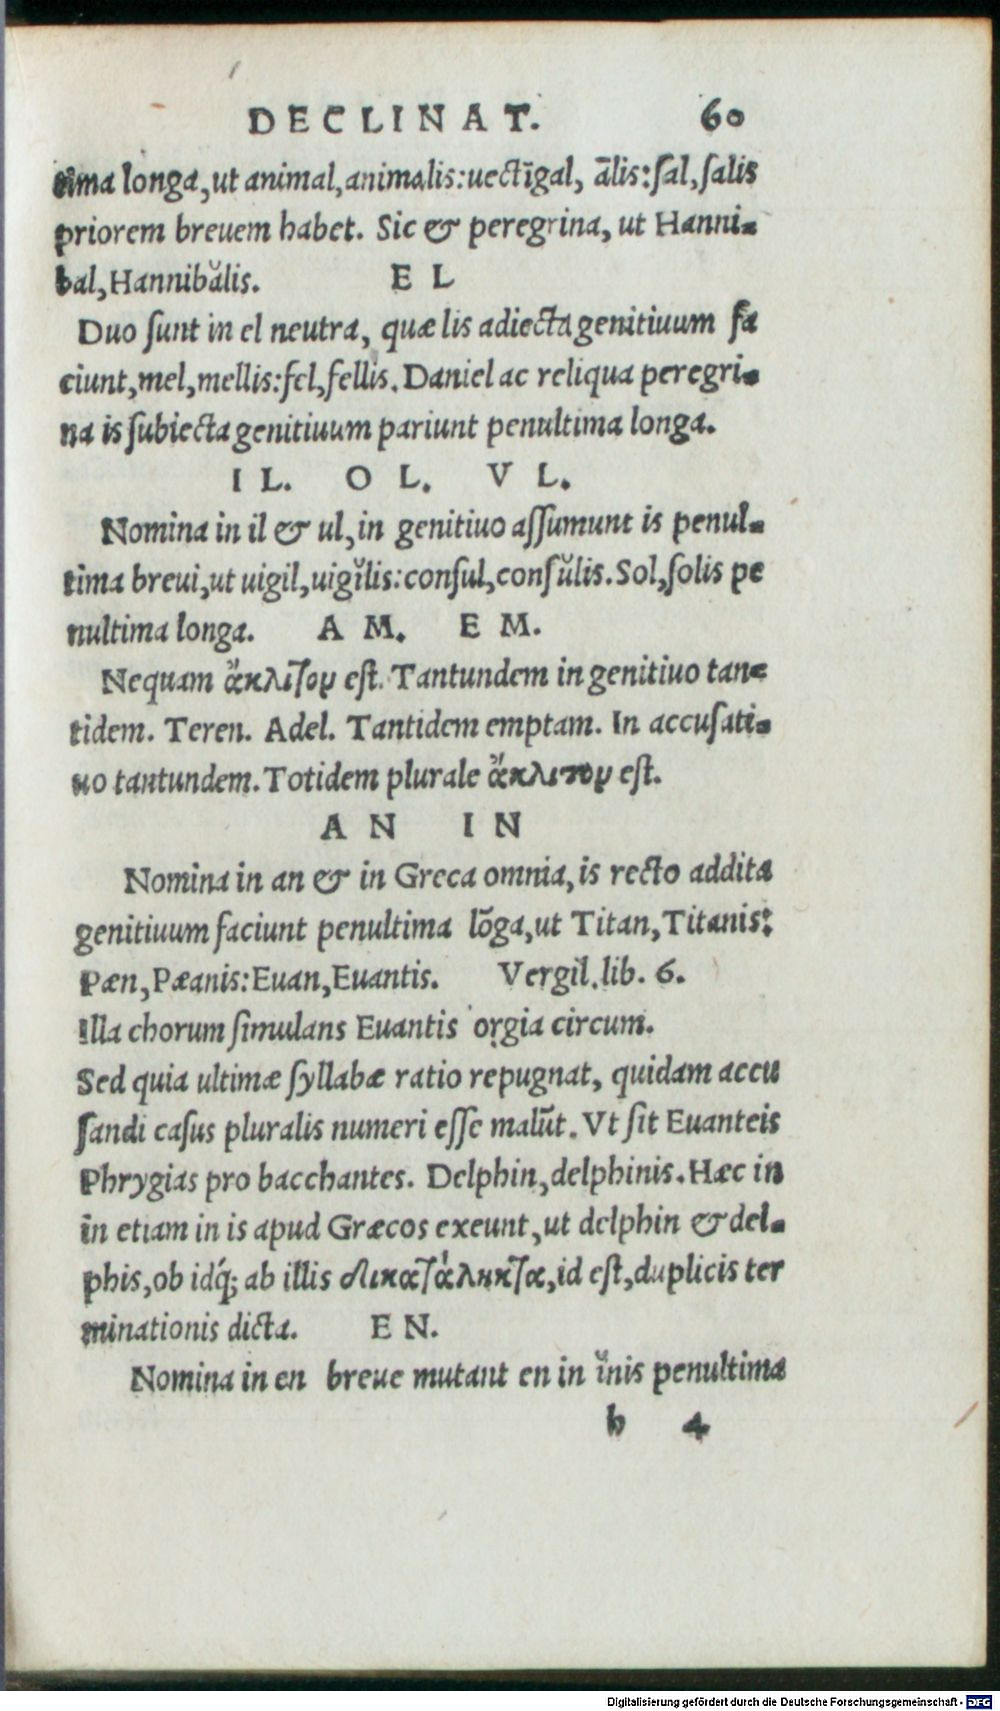 DECLINAT. 60
tima longa, ut animal, animalis: uectīgal, ālis: ſal, ſalis
priorem breuem habet. Sic & peregrina, ut Hanni-
bal, Hannibălis. EL
Duo ſunt in el neutra, quæ lis adiecta genitiuum fa
ciunt, mel, mellis: fel, fellis. Daniel ac reliqua peregri-
na is ſubiecta genitiuum pariunt penultima longa.
IL. OL. VL.
Nomina in il & ul, in genitiuo aſſumunt is penul-
tima breui, ut uigil, uigĭlis: conſul, conſŭlis. Sol, ſolis pe
nultima longa. AM. EM.
Nequam ἄκλιτον eſt. Tantundem in genitiuo tan-
tidem. Teren. Adel. Tantidem emptam. In accuſati-
uo tantundem. Totidem plurale ἄκλιτον eſt.
AN IN
Nomina in an & in Greca omnia, is recto addita
genitiuum faciunt penultima lōga, ut Titan, Titanis:
Pæn, Pæanis: Euan, Euantis. Vergil. lib. 6.
Illa chorum ſimulans Euantis orgia circum.
Sed quia ultimæ ſyllabæ ratio repugnat, quidam accu
ſandi caſus pluralis numeri eſſe malūt. Vt ſit Euanteis
Phrygias pro bacchantes. Delphin, delphinis. Hæc in
in etiam in is apud Græcos exeunt, ut delphin & del-
phis, ob idq́; ab illis δικατάληκτα, id eſt, duplicis ter
minationis dicta. EN.
Nomina in en breue mutant en in ĭnis penultima
h 4
Digitalisierung gefördert durch die Deutsche Forschungsgemeinschaft - DFG